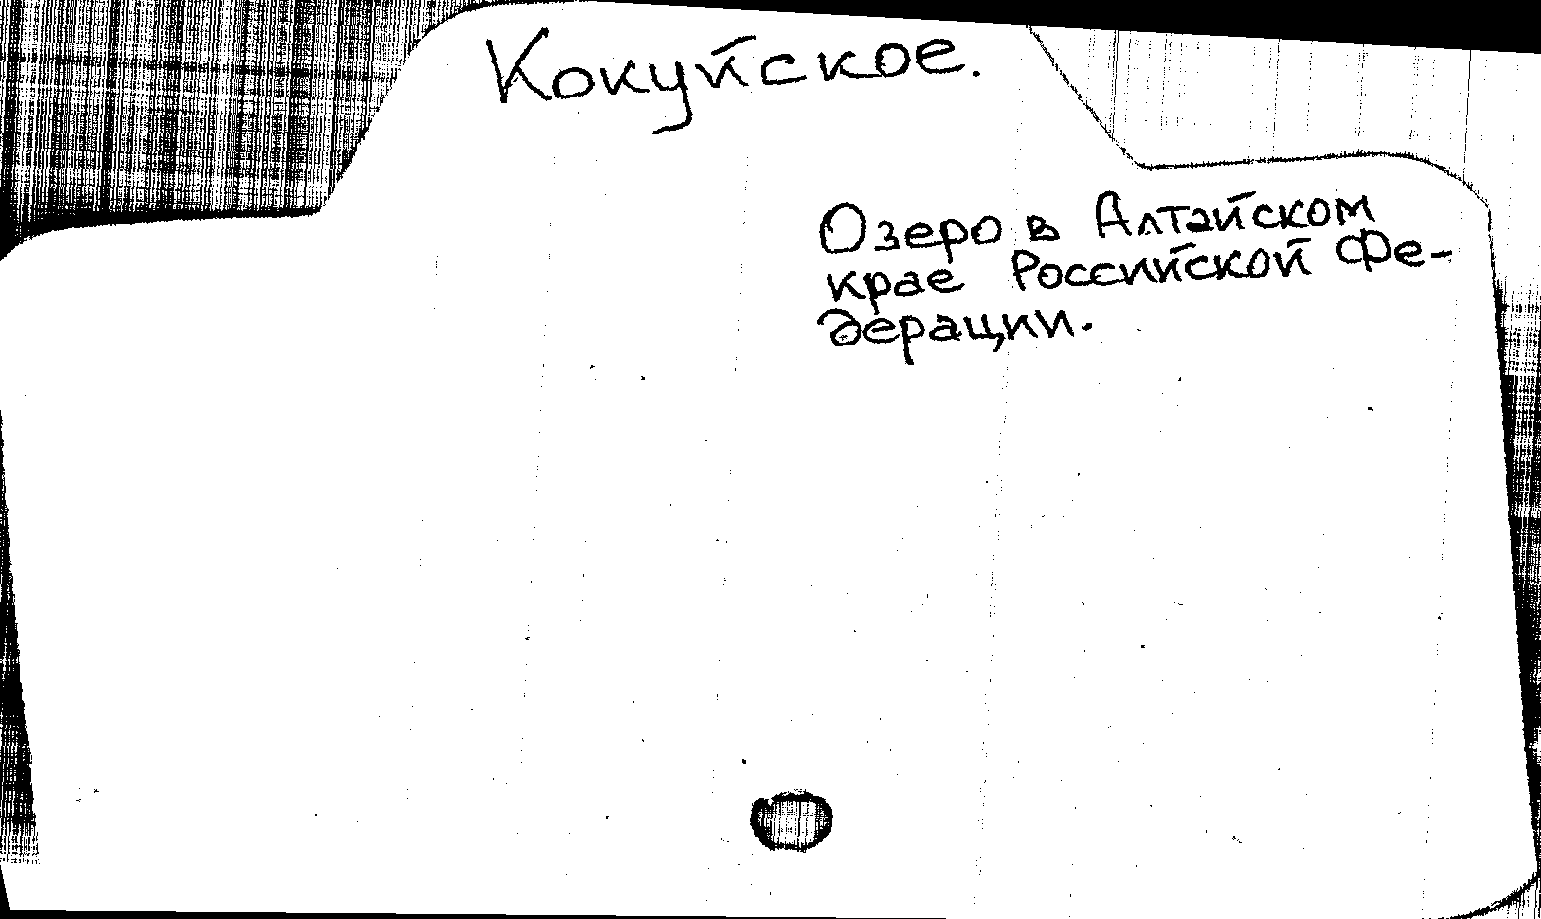 Кокуйское.
Озеро в Алтайском
крае Российской Фе-
дерации.